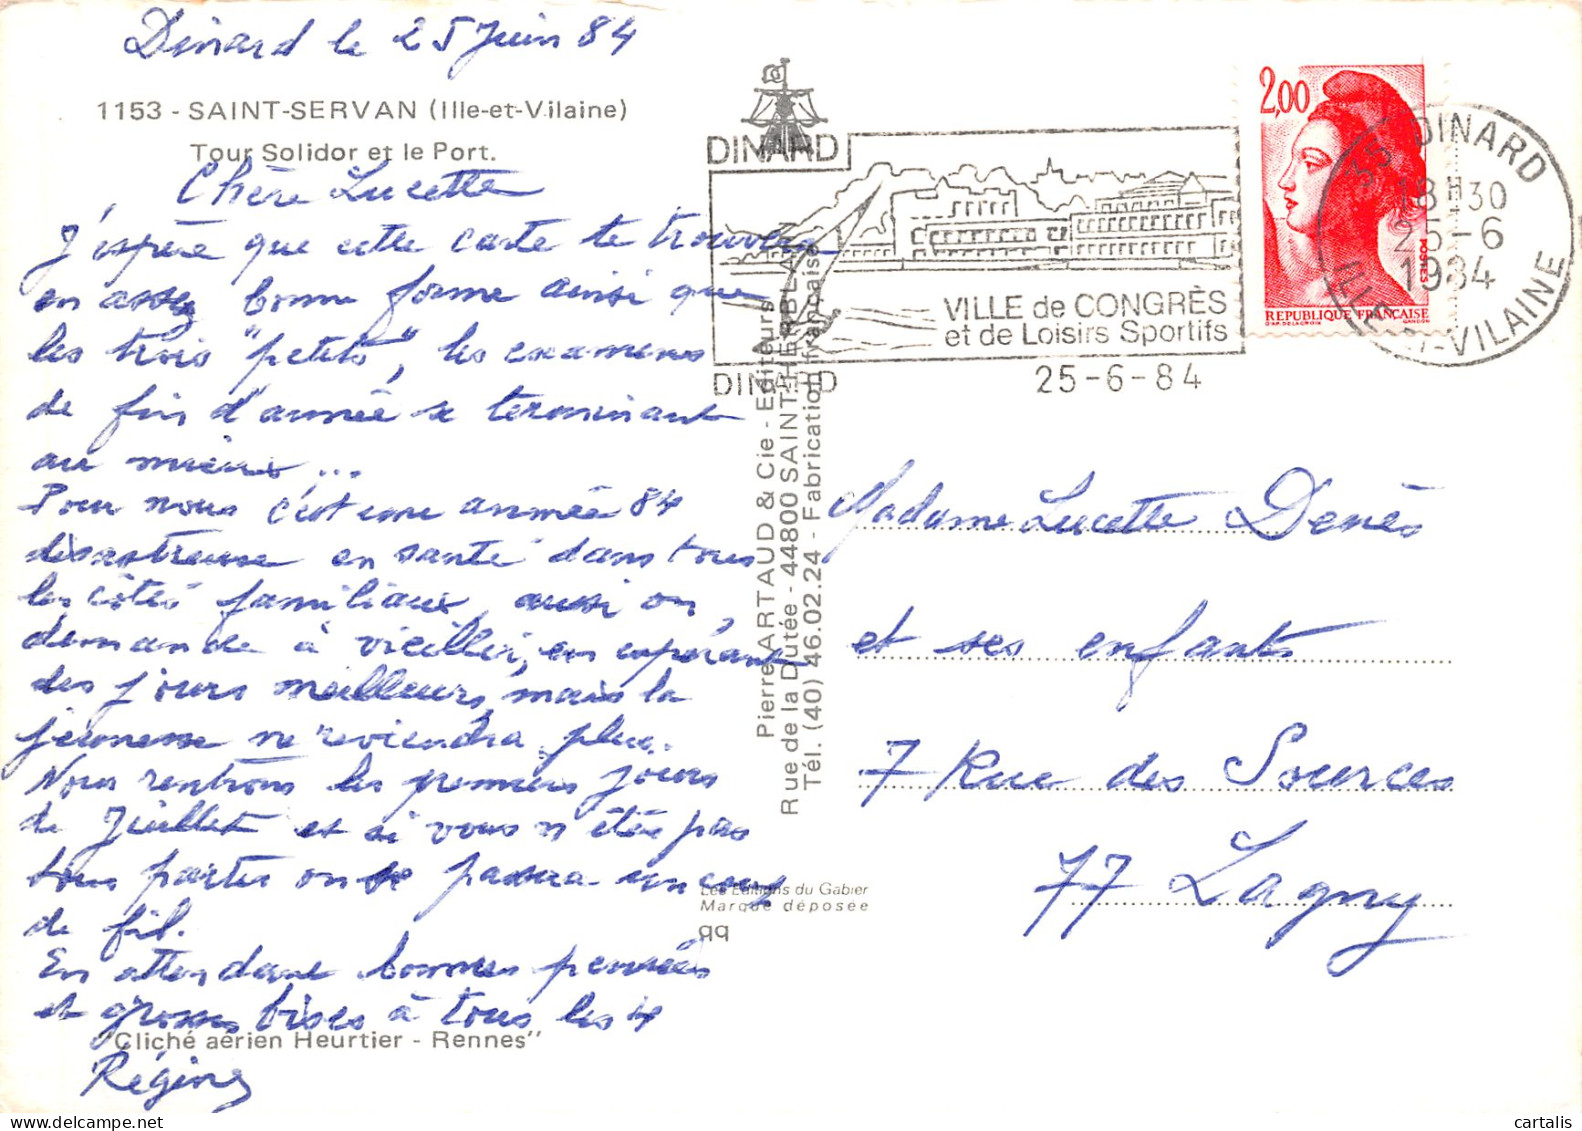 Dinard le 25 Juin 84
1153 - SAINT-SERVAN (Ille-et-Vilaine)
Tour Solidor et le Port.
Chère Lucette
J'espère que cette carte te trouvera
en assez bonne forme ainsi que
les trois "petits", les examens
de fin d'année se terminant
au mieux ...
Pour nous c'est une année 84
désastreuse en santé dans tous
les côtés familiaux, aussi on
demande à vieillir, en espérant
des jours meilleurs, mais la
jeunesse ne reviendra plus.
Nous rentrons les premiers jours
de Juillet et si vous n'êtes pas
tous partis on se passera un coup
de fil.
En attendant bonnes pensées
et grosses bises à tous les 4
"Cliché aérien Heurtier - Rennes"
Régine
Pierre ARTAUD & Cie - Editeurs
Rue de la Dutée - 44800 SAINT-HERBLAIN
Tél. (40) 46.02.24 - Fabrication française
Les Editions du Gabier
Marque déposée
qq
DINARD
VILLE de CONGRÈS
et de Loisirs Sportifs
DINARD
25-6-84
2,00
POSTES
REPUBLIQUE FRANÇAISE
D'AP. DELACROIX GANDON
35 DINARD
18H30
25-6
1984
ILLE-ET-VILAINE
Madame Lucette
et ses enfants
7 Rue des Sources
77 Lagny
cartalis